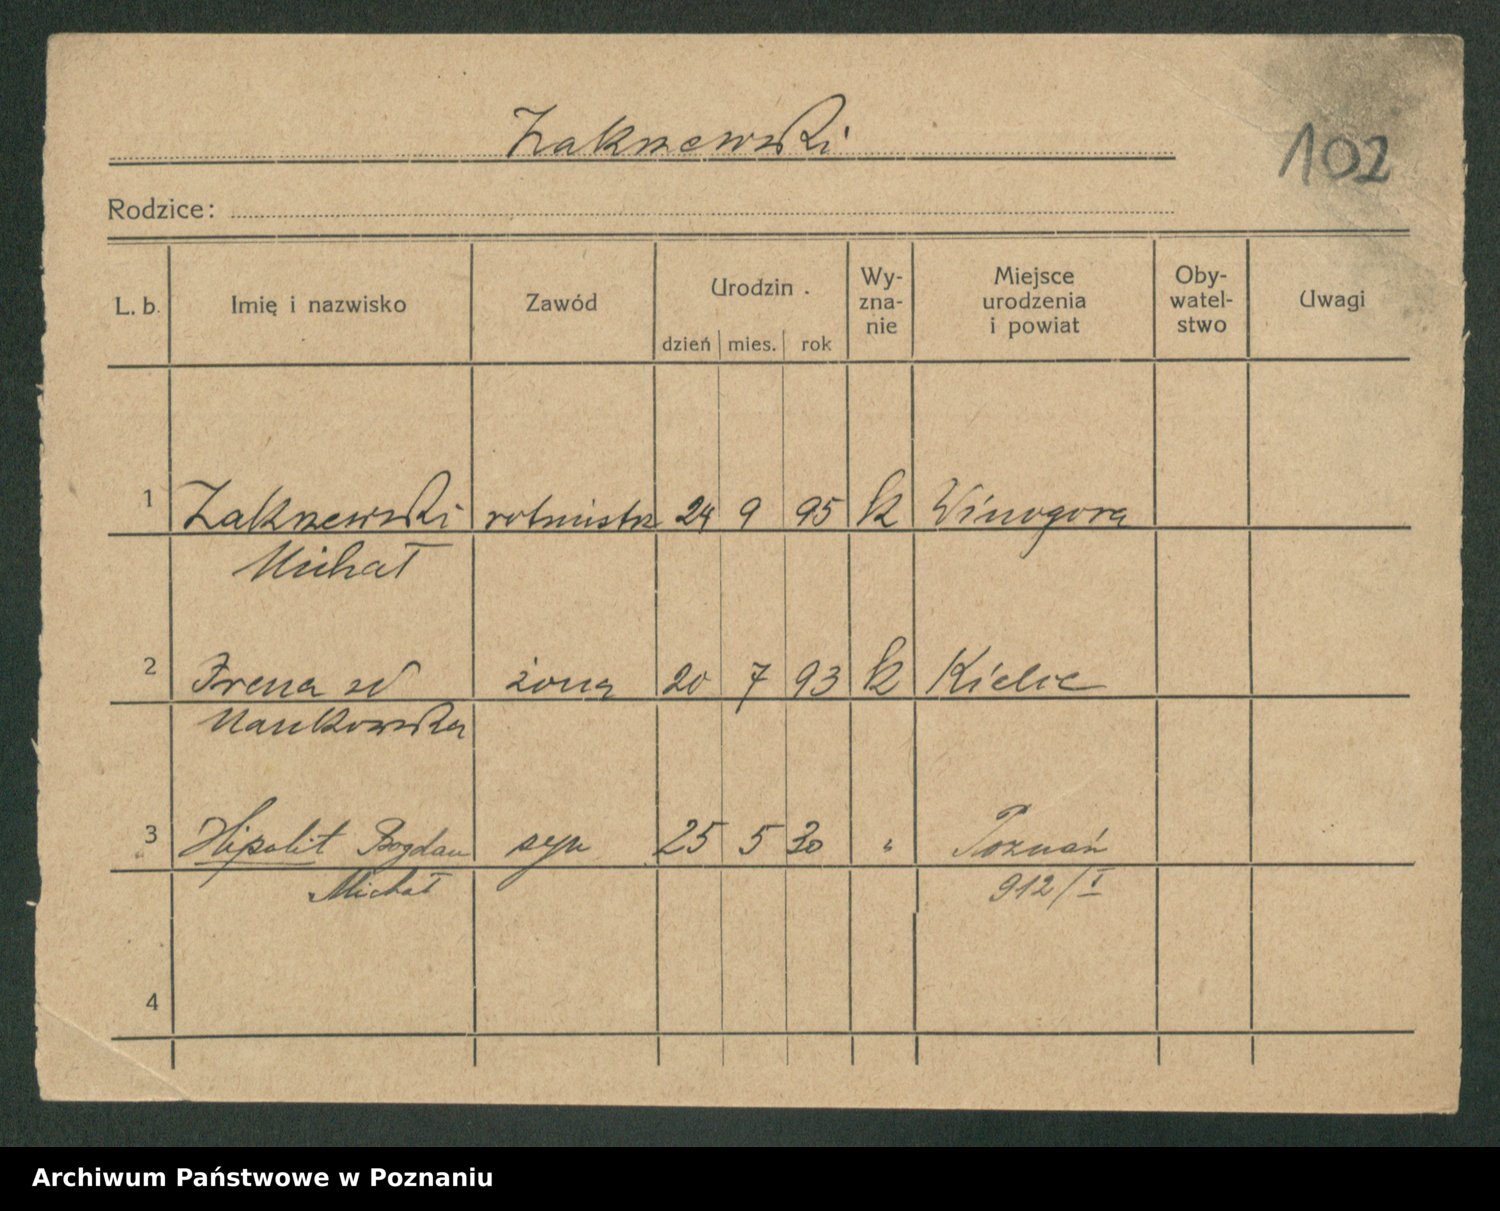 Zakrzewski
102
Rodzice:
L. b. Imię i nazwisko Zawód Urodzin . Wy-zna-nie Miejsce urodzenia i powiat Oby-watel-stwo Uwagi
dzień mies. rok
1 Zakrzewski rotmistrz 24 9 95 k Winogora
Michał
2 Irena zd żona 20 7 93 k Kielce
Mańkowska
3 Hipolit Bogdan syn 25 5 30 " Poznań
Michał 912/I
4
Archiwum Państwowe w Poznaniu